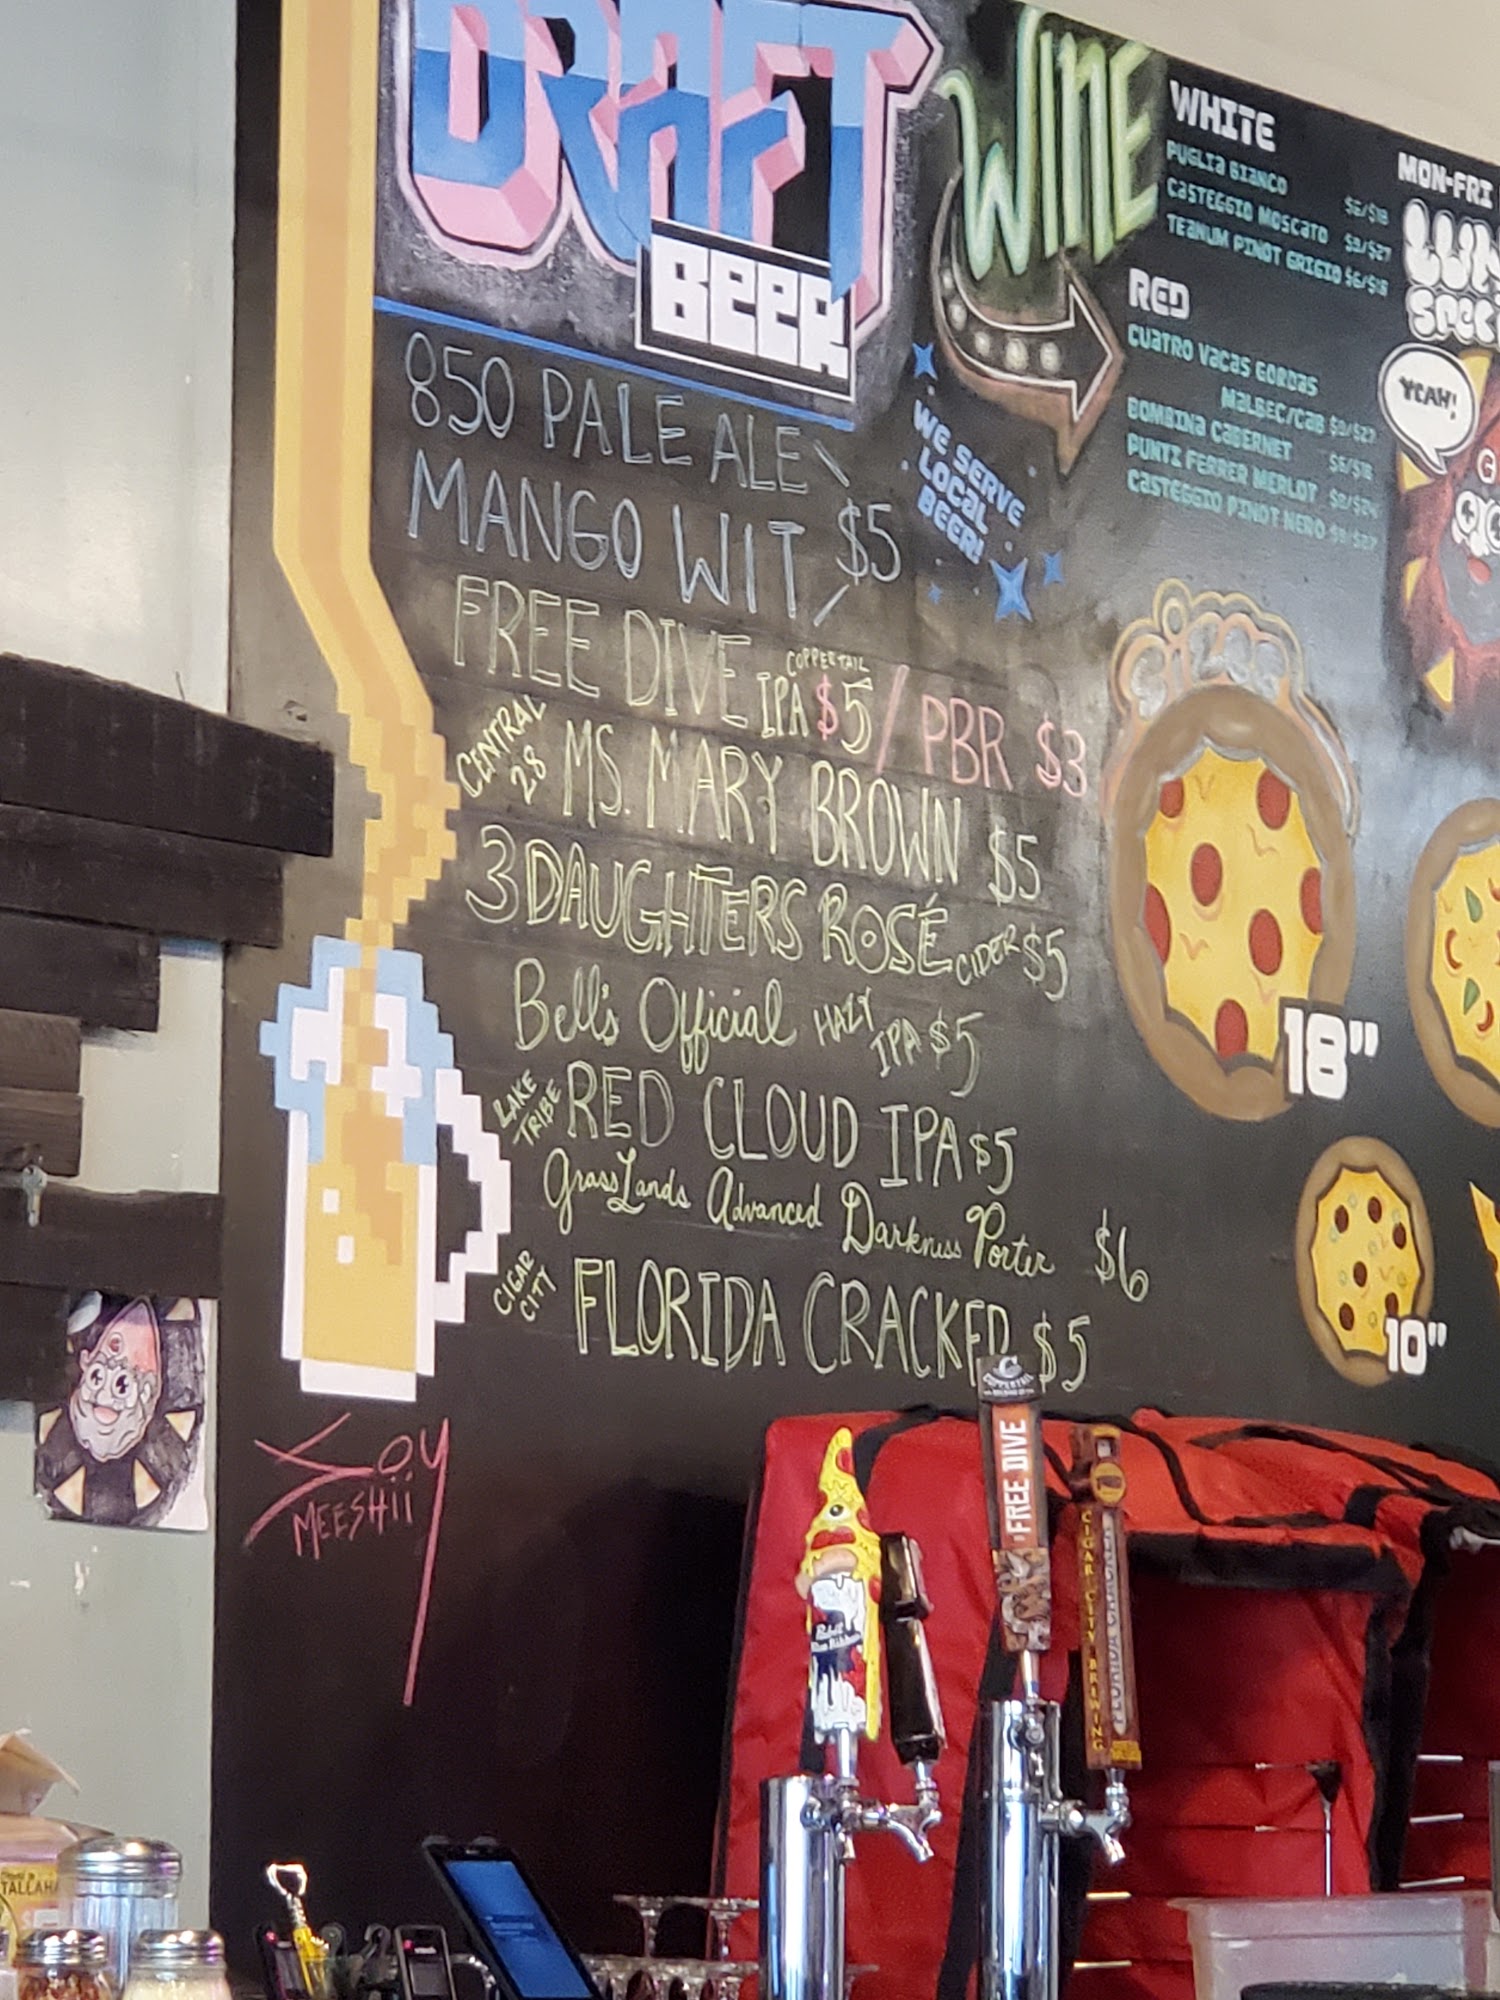 DRAFT
BEER
850 PALE ALE
MANGO WIT $5
FREE DIVE IPA COPPERTAIL $5 / PBR $3
CENTRAL 28 MS. MARY BROWN $5
3 DAUGHTERS ROSÉ CIDER $5
Bell's Official HAZY IPA $5
LAKE TRIBE RED CLOUD IPA $5
GrassLands Advanced Darkness Porter $6
CIGAR CITY FLORIDA CRACKED $5
WE SERVE
LOCAL
BEER!
WINE
WHITE
PUGLIA BIANCO $6/$18
CASTEGGIO MOSCATO $9/$27
TEANUM PINOT GRIGIO $6/$18
RED
CUATRO VACAS GORDAS
MALBEC/CAB $9/$27
BOMBINA CABERNET $6/$18
PUNTI FERRER MERLOT
CASTEGGIO PINOT NERO $9/$27
MON-FRI
YEAH!
SIZES
18"
10"
SOiY
MEESHii
COPPERTAIL
FREE DIVE
CIGAR CITY BREWING
Pabst
Blue Ribbon
TALLAHA